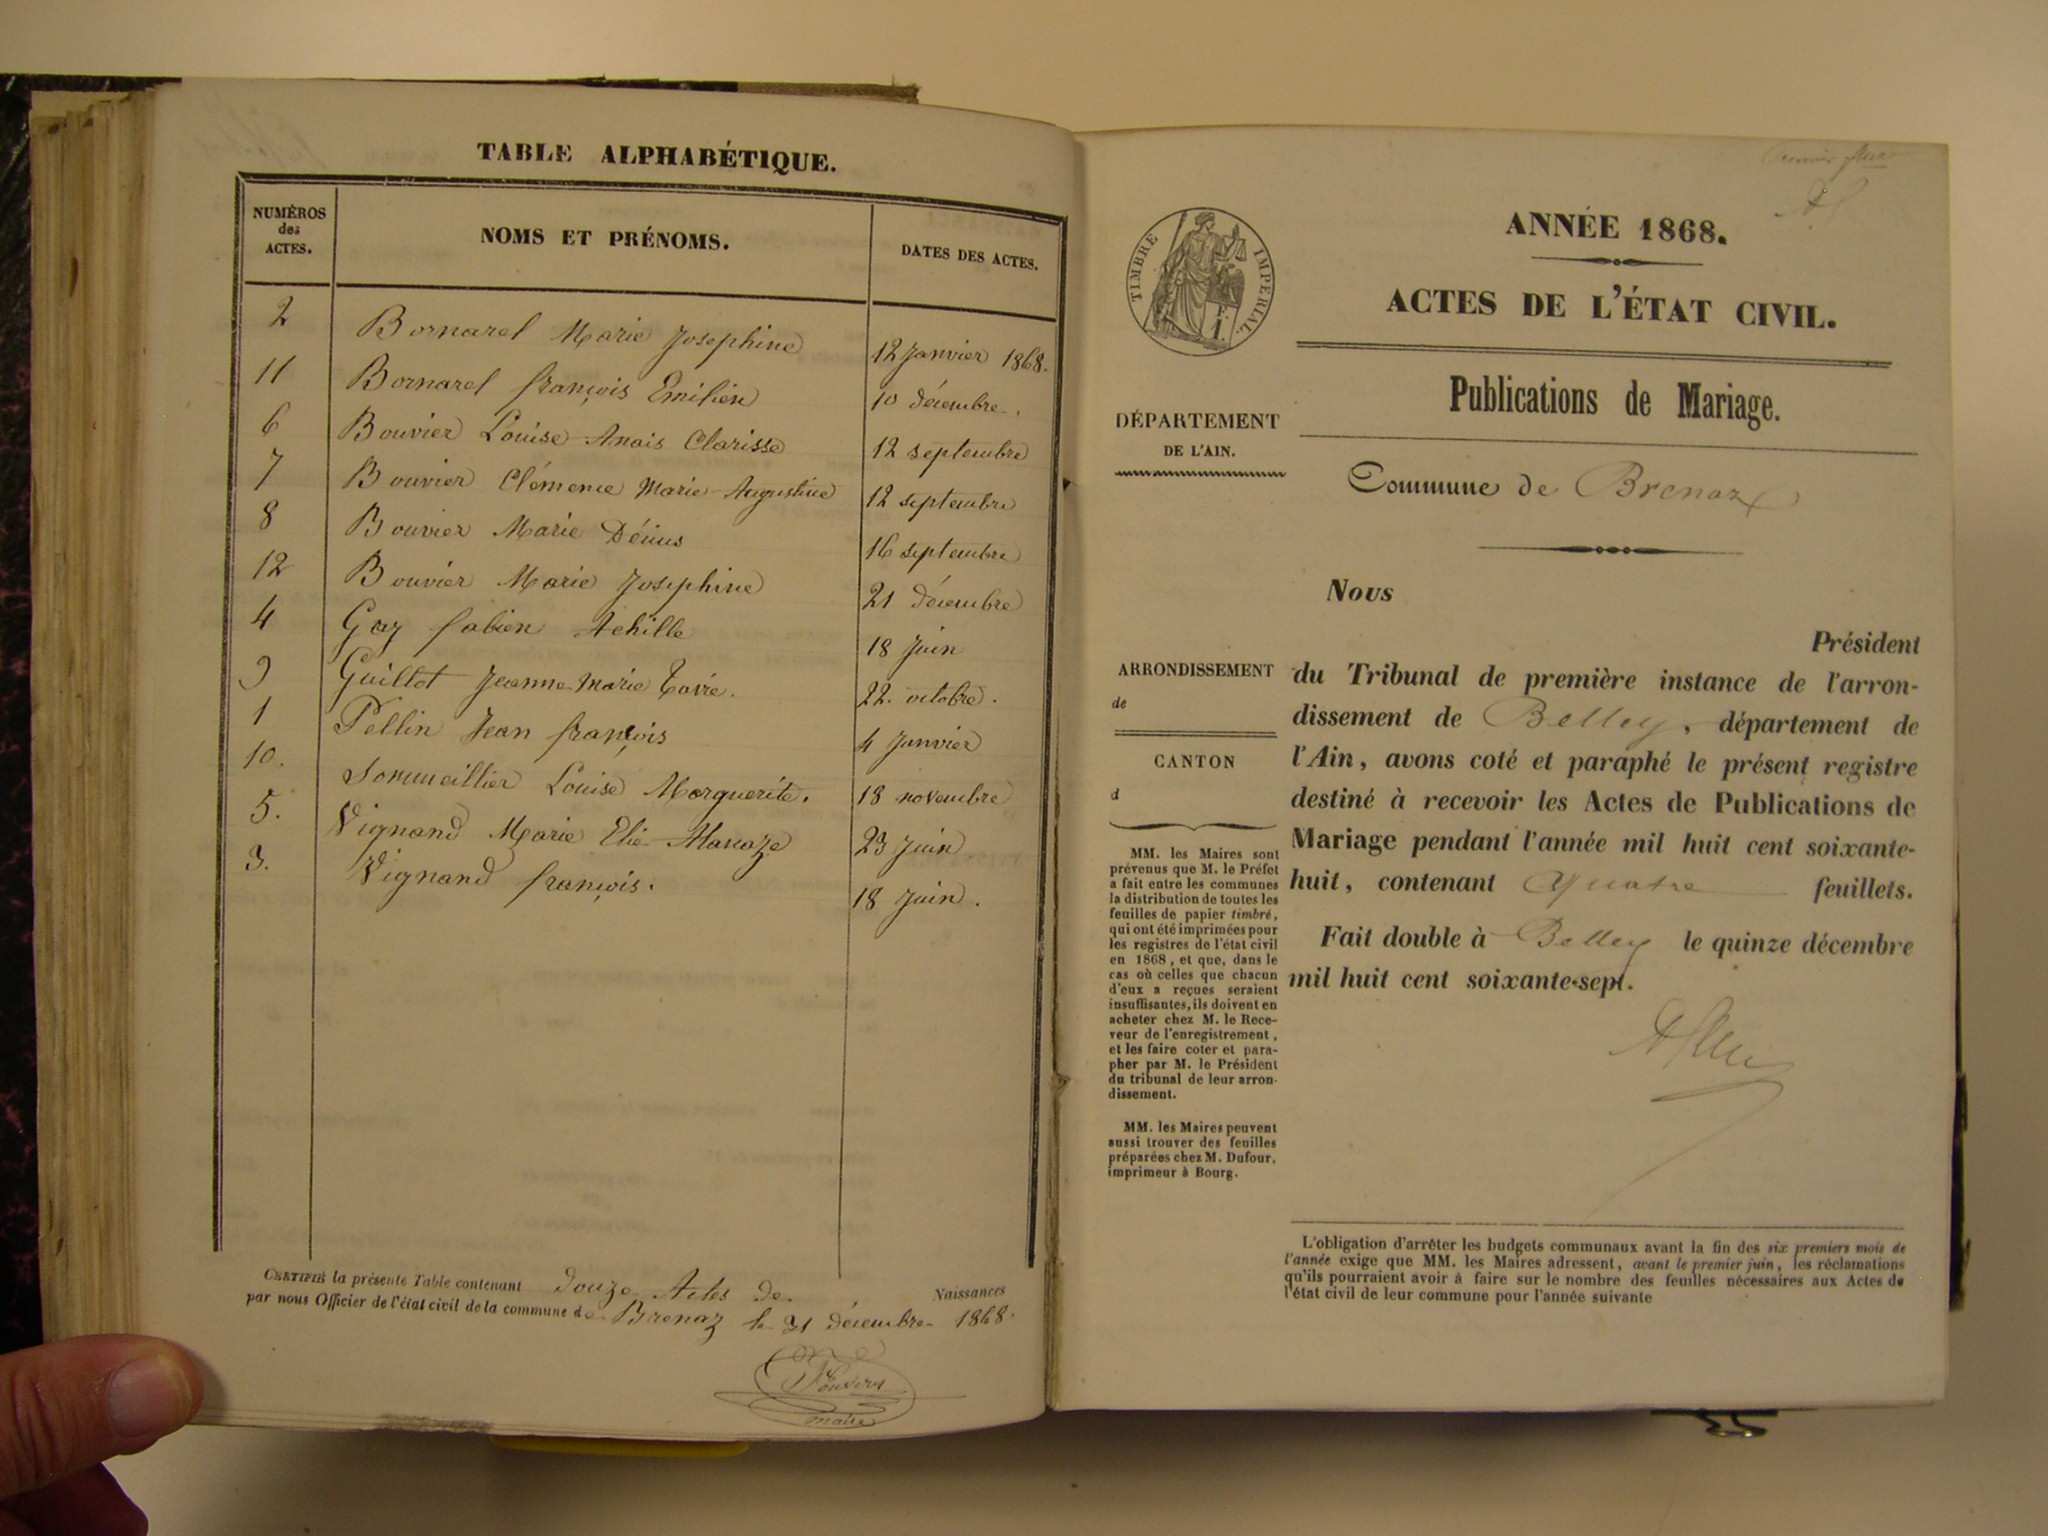 TABLE ALPHABÉTIQUE.
NUMÉROS des ACTES.
NOMS ET PRÉNOMS.
DATES DES ACTES.
2 Bornarel Marie Josephine 12 Janvier 1868.
11 Bornarel françois Emilien 10 décembre.
6 Bouvier Louise Anais Clarisse 12 septembre
7 Bouvier Clémence Marie Augustine 12 septembre
8 Bouvier Marie 16 septembre
12 Bouvier Marie Josephine 21 décembre
4 Gay fabien Achille 18 Juin
9 Guillot Jeanne Marie 22. octobre.
1 Pellin Jean françois 4 Janvier
10. Sommeillier Louise Marguerite. 18 novembre
5. Vignand Marie Elie 23 Juin
3. Vignand françois. 18 Juin.
CERTIFIÉ la présente Table contenant douze Actes de Naissances
par nous Officier de l'état civil de la commune de Brenaz le 31 décembre 1868.
maire
TIMBRE IMPÉRIAL.
ANNÉE 1868.
ACTES DE L'ÉTAT CIVIL.
Publications de Mariage.
DÉPARTEMENT
DE L'AIN.
Commune de Brenaz
Nous
Président
du Tribunal de première instance de l'arron-
dissement de Belley, département de
l'Ain, avons coté et paraphé le présent registre
destiné à recevoir les Actes de Publications de
Mariage pendant l'année mil huit cent soixante-
huit, contenant Quatre feuillets.
Fait double à Belley le quinze décembre
mil huit cent soixante-sept.
ARRONDISSEMENT
de
CANTON
d
MM. les Maires sont
prévenus que M. le Préfet
a fait entre les communes
la distribution de toutes les
feuilles de papier timbré,
qui ont été imprimées pour
les registres de l'état civil
en 1868, et que, dans le
cas où celles que chacun
d'eux a reçues seraient
insuffisantes, ils doivent en
acheter chez M. le Rece-
veur de l'enregistrement,
et les faire coter et para-
pher par M. le Président
du tribunal de leur arron-
dissement.
MM. les Maires peuvent
aussi trouver des feuilles
préparées chez M. Dufour,
imprimeur à Bourg.
L'obligation d'arrêter les budgets communaux avant la fin des six premiers mois de
l'année exige que MM. les Maires adressent, avant le premier juin, les réclamations
qu'ils pourraient avoir à faire sur le nombre des feuilles nécessaires aux Actes de
l'état civil de leur commune pour l'année suivante